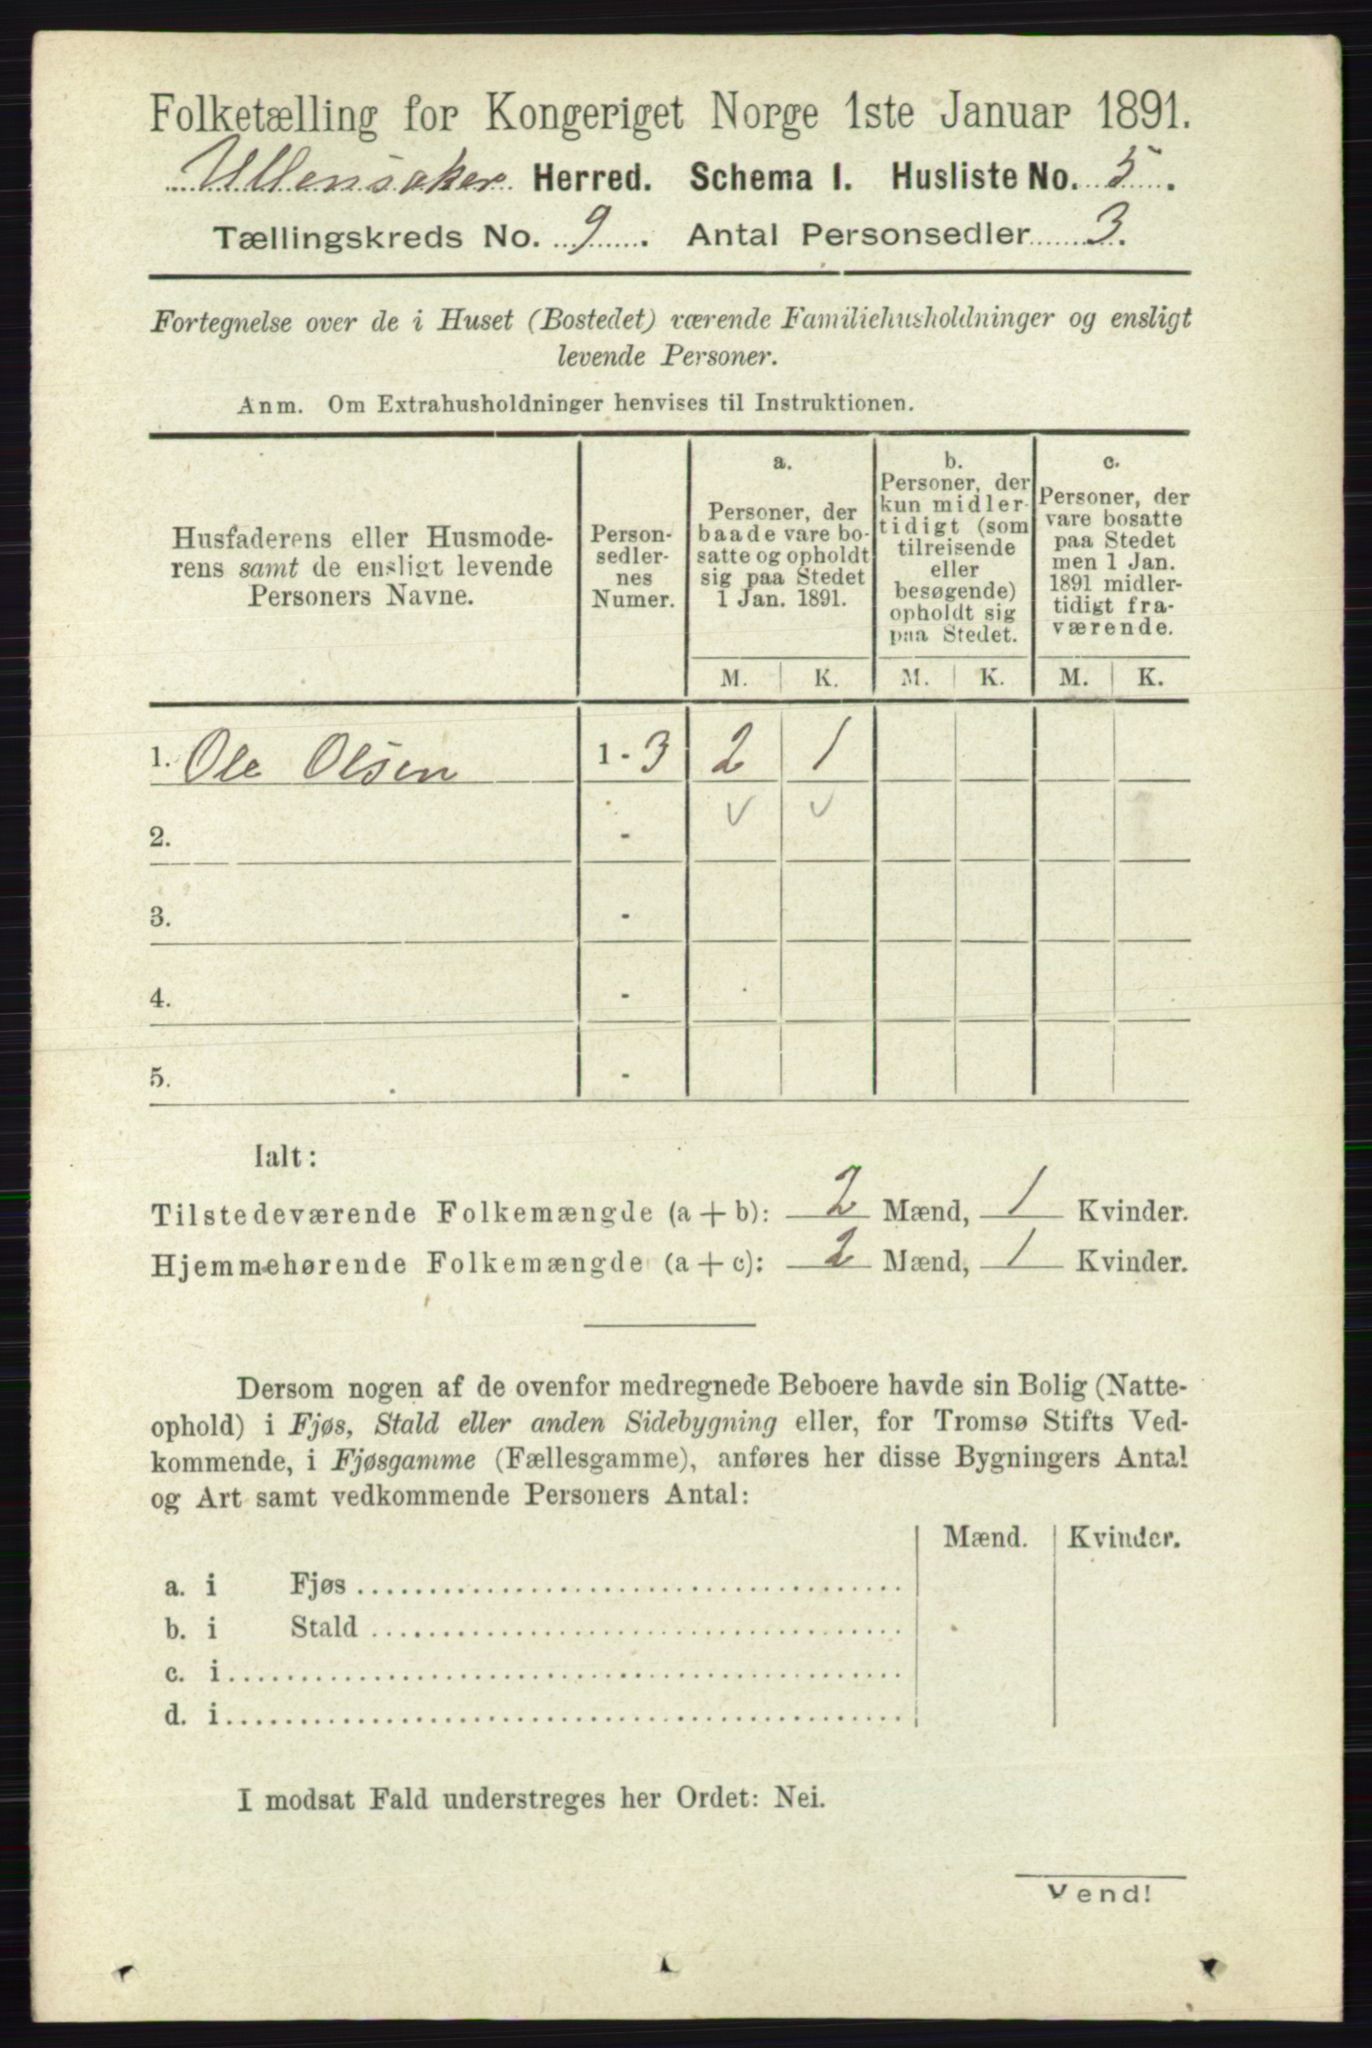 Folketælling for Kongeriget Norge 1ste Januar 1891.
Ullensaker Herred. Schema I. Husliste No. 5.
Tællingskreds No. 9. Antal Personsedler 3.
Fortegnelse over de i Huset (Bostedet) værende Familiehusholdninger og ensligt
levende Personer.
Anm. Om Extrahusholdninger henvises til Instruktionen.
Husfaderens eller Husmode-
rens samt de ensligt levende
Personers Navne.
Person-
sedler-
nes
Numer.
a.
Personer, der
baade vare bo-
satte og opholdt
sig paa Stedet
1 Jan. 1891.
b.
Personer, der
kun midler-
tidigt (som
tilreisende
eller
besøgende)
opholdt sig
paa Stedet.
c.
Personer, der
vare bosatte
paa Stedet
men 1 Jan.
1891 midler-
tidigt fra-
værende.
M. K. M. K. M. K.
1. Ole Olsen 1 - 3 2 1
2. - v v
3. -
4. -
5. -
Ialt:
Tilstedeværende Folkemængde (a + b): 2 Mænd, 1 Kvinder.
Hjemmehørende Folkemængde (a + c): 2 Mænd, 1 Kvinder.
Dersom nogen af de ovenfor medregnede Beboere havde sin Bolig (Natte-
ophold) i Fjøs, Stald eller anden Sidebygning eller, for Tromsø Stifts Ved-
kommende, i Fjøsgamme (Fællesgamme), anføres her disse Bygningers Antal
og Art samt vedkommende Personers Antal:
Mænd. Kvinder.
a. i Fjøs
b. i Stald
c. i
d. i
I modsat Fald understreges her Ordet: Nei.
Vend!